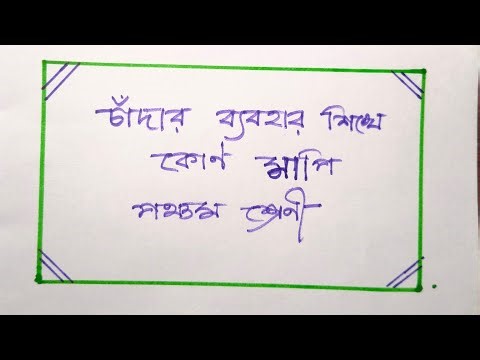 চাঁদার ব্যবহার শিখে
কোণ মাপি
পঞ্চম শ্রেণী